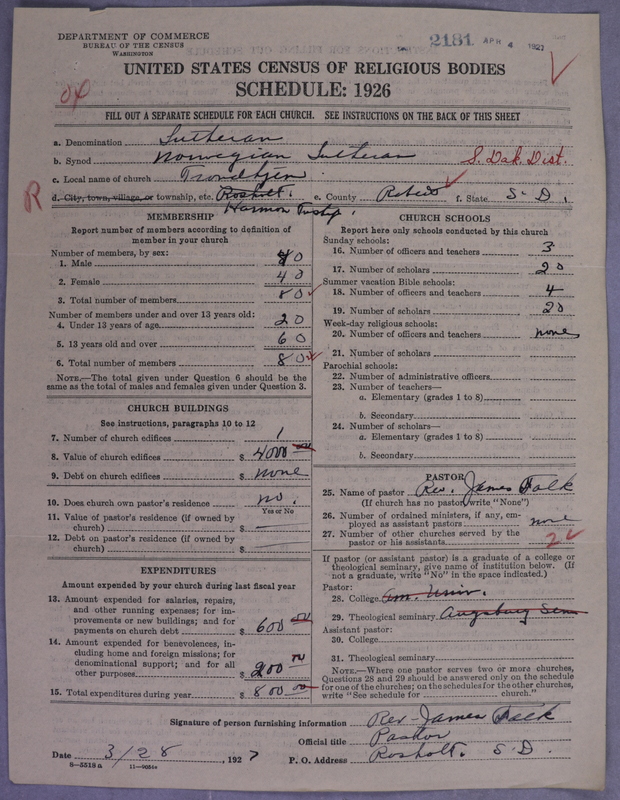 DEPARTMENT OF COMMERCE
BUREAU OF THE CENSUS
WASHINGTON
2181 APR 4 1927
UNITED STATES CENSUS OF RELIGIOUS BODIES
SCHEDULE: 1926
FILL OUT A SEPARATE SCHEDULE FOR EACH CHURCH. SEE INSTRUCTIONS ON THE BACK OF THIS SHEET
a. Denomination Lutheran
b. Synod Norwegian Lutheran S. Dak. Dist.
c. Local name of church Trondhjem
R d. City, town, village, or township, etc. Rosholt. e. County Roberts f. State S. D.
Harmon Twshp.
MEMBERSHIP
Report number of members according to definition of
member in your church
Number of members, by sex:
1. Male 40
2. Female 40
3. Total number of members 80
Number of members under and over 13 years old:
4. Under 13 years of age 20
5. 13 years old and over 60
6. Total number of members 80
NOTE.—The total given under Question 6 should be the
same as the total of males and females given under Question 3.
CHURCH BUILDINGS
See instructions, paragraphs 10 to 12
7. Number of church edifices 1
8. Value of church edifices $ 4000 00
9. Debt on church edifices $ none
10. Does church own pastor's residence no.
Yes or No
11. Value of pastor's residence (if owned by
church) $
12. Debt on pastor's residence (if owned by
church) $
EXPENDITURES
Amount expended by your church during last fiscal year
13. Amount expended for salaries, repairs,
and other running expenses; for im-
provements or new buildings; and for
payments on church debt $ 600 00
14. Amount expended for benevolences, in-
cluding home and foreign missions; for
denominational support; and for all
other purposes $ 200 00
15. Total expenditures during year $ 800 00
CHURCH SCHOOLS
Report here only schools conducted by this church
Sunday schools:
16. Number of officers and teachers 3
17. Number of scholars 20
Summer vacation Bible schools:
18. Number of officers and teachers 4
19. Number of scholars 20
Week-day religious schools:
20. Number of officers and teachers none
21. Number of scholars
Parochial schools:
22. Number of administrative officers
23. Number of teachers—
a. Elementary (grades 1 to 8)
b. Secondary
24. Number of scholars—
a. Elementary (grades 1 to 8)
b. Secondary
PASTOR
25. Name of pastor Rev. James Falk
(If church has no pastor, write "None")
26. Number of ordained ministers, if any, em-
ployed as assistant pastors none
27. Number of other churches served by the
pastor or his assistants 2
If pastor (or assistant pastor) is a graduate of a college or
theological seminary, give name of institution below. (If
not a graduate, write "No" in the space indicated.)
Pastor:
28. College Univ.
29. Theological seminary Augsburg Sem
Assistant pastor:
30. College
31. Theological seminary
NOTE.—Where one pastor serves two or more churches,
Questions 28 and 29 should be answered only on the schedule
for one of the churches; on the schedules for the other churches,
write "See schedule for church."
Signature of person furnishing information Rev. James Falk
Official title Pastor
Date 3/28, 1927 P. O. Address Rosholt. S. D.
8—5518 a 11—9054a